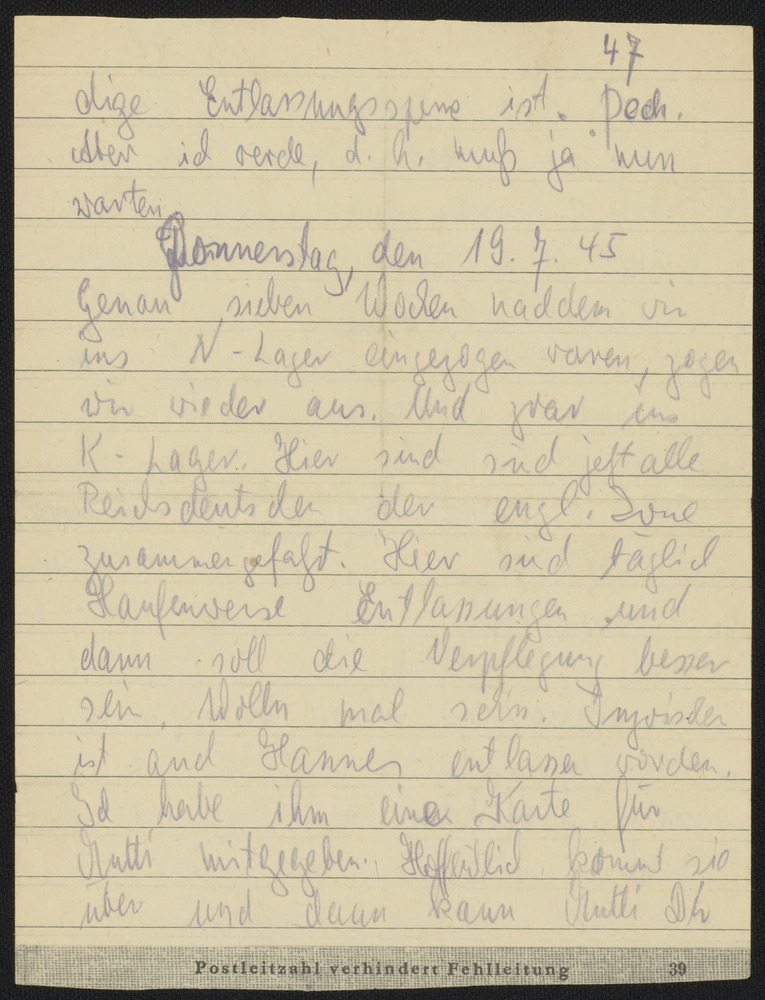 47
dige Entlassungssperre ist. Pech.
Aber ich werde, d. h. muß ja nun
warten.
Donnerstag, den 19. 7. 45
Genau sieben Wochen nachdem wir
ins N-Lager eingezogen waren, zogen
wir wieder aus. Und zwar ins
K-Lager. Hier sind sind jetzt alle
Reichsdeutschen der engl. Zone
zusammengefaßt. Hier sind täglich
Haufenweise Entlassungen und
dann soll die Verpflegung besser
sein. Wolln mal sehn. Inzwischen
ist auch Hannes entlassen worden.
Ich habe ihm eine Karte für
Mutti mitgegeben. Hoffentlich kommt sie
über und dann kann Mutti
Postleitzahl verhindert Fehlleitung 39